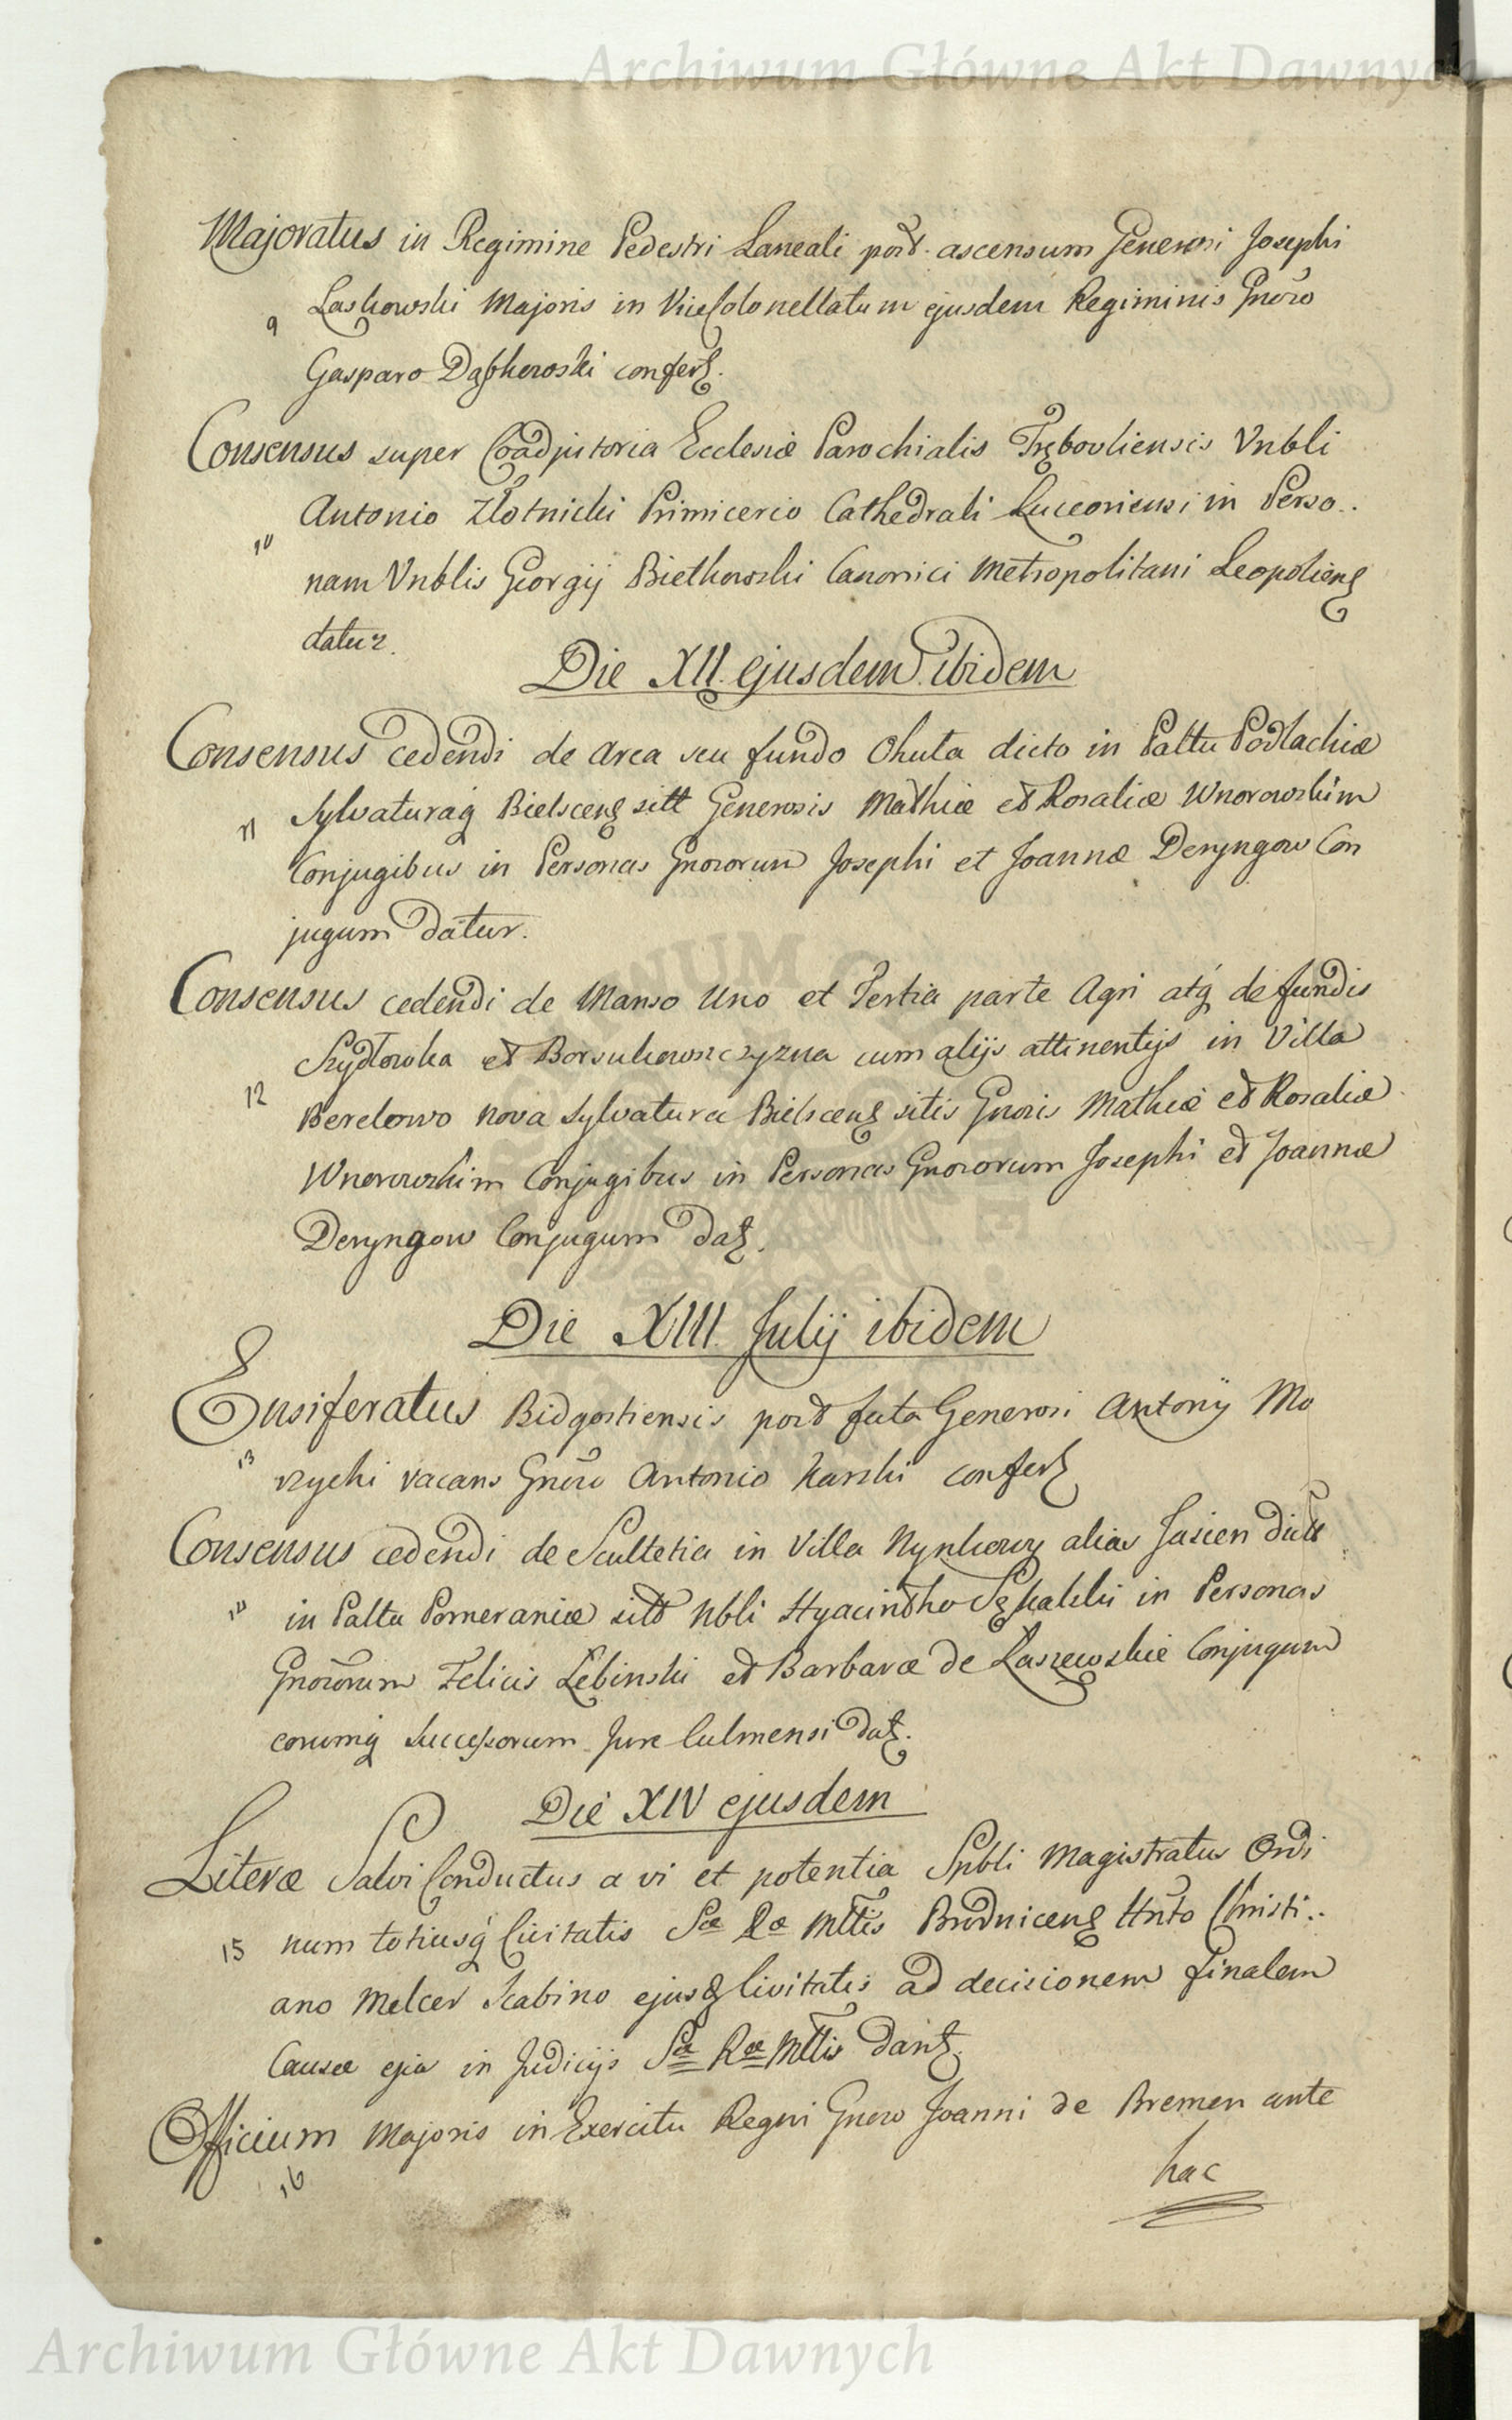 Archiwum Główne Akt Dawnych
Majoratus in Regimine Pedestri Laneali post ascensum Generosi Josephi
9 Laskowski Majoris in ViceColonellatum ejusdem Regiminis Gnoso
Gasparo Dąbkowski confert.
Consensus super Coadjutoria Ecclesiæ Parochialis Trębovliensis Vnbli
Antonio Złotnicki Primicerio Cathedrali Luceoriensi in Perso..
10 nam Vnblis Georgij Bielkowski Canonici Metropolitani Leopoliens
datur.
Die XII ejusdem ibidem
Consensus cedendi de Area seu fundo Ohuta dicto in Pallu Podlachiæ
11 Sylvaturaq Bielscens sitt Generosis Mathiæ et Rosaliæ Wnorowskim
Conjugibus in Personas Gnosorum Josephi et Joannæ Deryngow Con
jugum datur.
Consensus cedendi de Manso Uno et Tertia parte Agri atq de fundis
Szydłowka et Borsukowszczyzna cum alijs attinentijs in Villa
12 Berelowo nova Sylvatura Bielscens sitis Gnosis Mathiæ et Rosaliæ
Wnorowskim Conjugibus in Personas Gnosorum Josephi et Joannæ
Deryngow Conjugum dat.
Die XIII Julij ibidem
Ensiferatus Bidgostiensis post fata Generosi Antonij Mo
13 rzycki vacans Gnoso Antonio Karski confert
Consensus cedendi de Scultetia in Villa Nynkowy alias Jasien dict
14 in Pallu Pomeraniæ sitt Nbli Hyacintho in Personas
Gnosorum Felicis Lebinski et Barbaræ de Laszewskie Conjugum
eorumq Successorum Jure Culmensi dat.
Die XIV ejusdem
Literæ Salvi Conductus a vi et potentia Spbli Magistratus Ordi
15 num totiusq Civitatis Sæ Ræ Mttis Brodnicens Hnto Christi..
ano Melcer Scabino ejusd Civitatis ad decisionem finalem
Causæ ejus in Judicijs Sæ Ræ Mttis dant.
Officium Majoris in Exercitu Regni Gnoso Joanni de Bremen ante
16
hac
Archiwum Główne Akt Dawnych